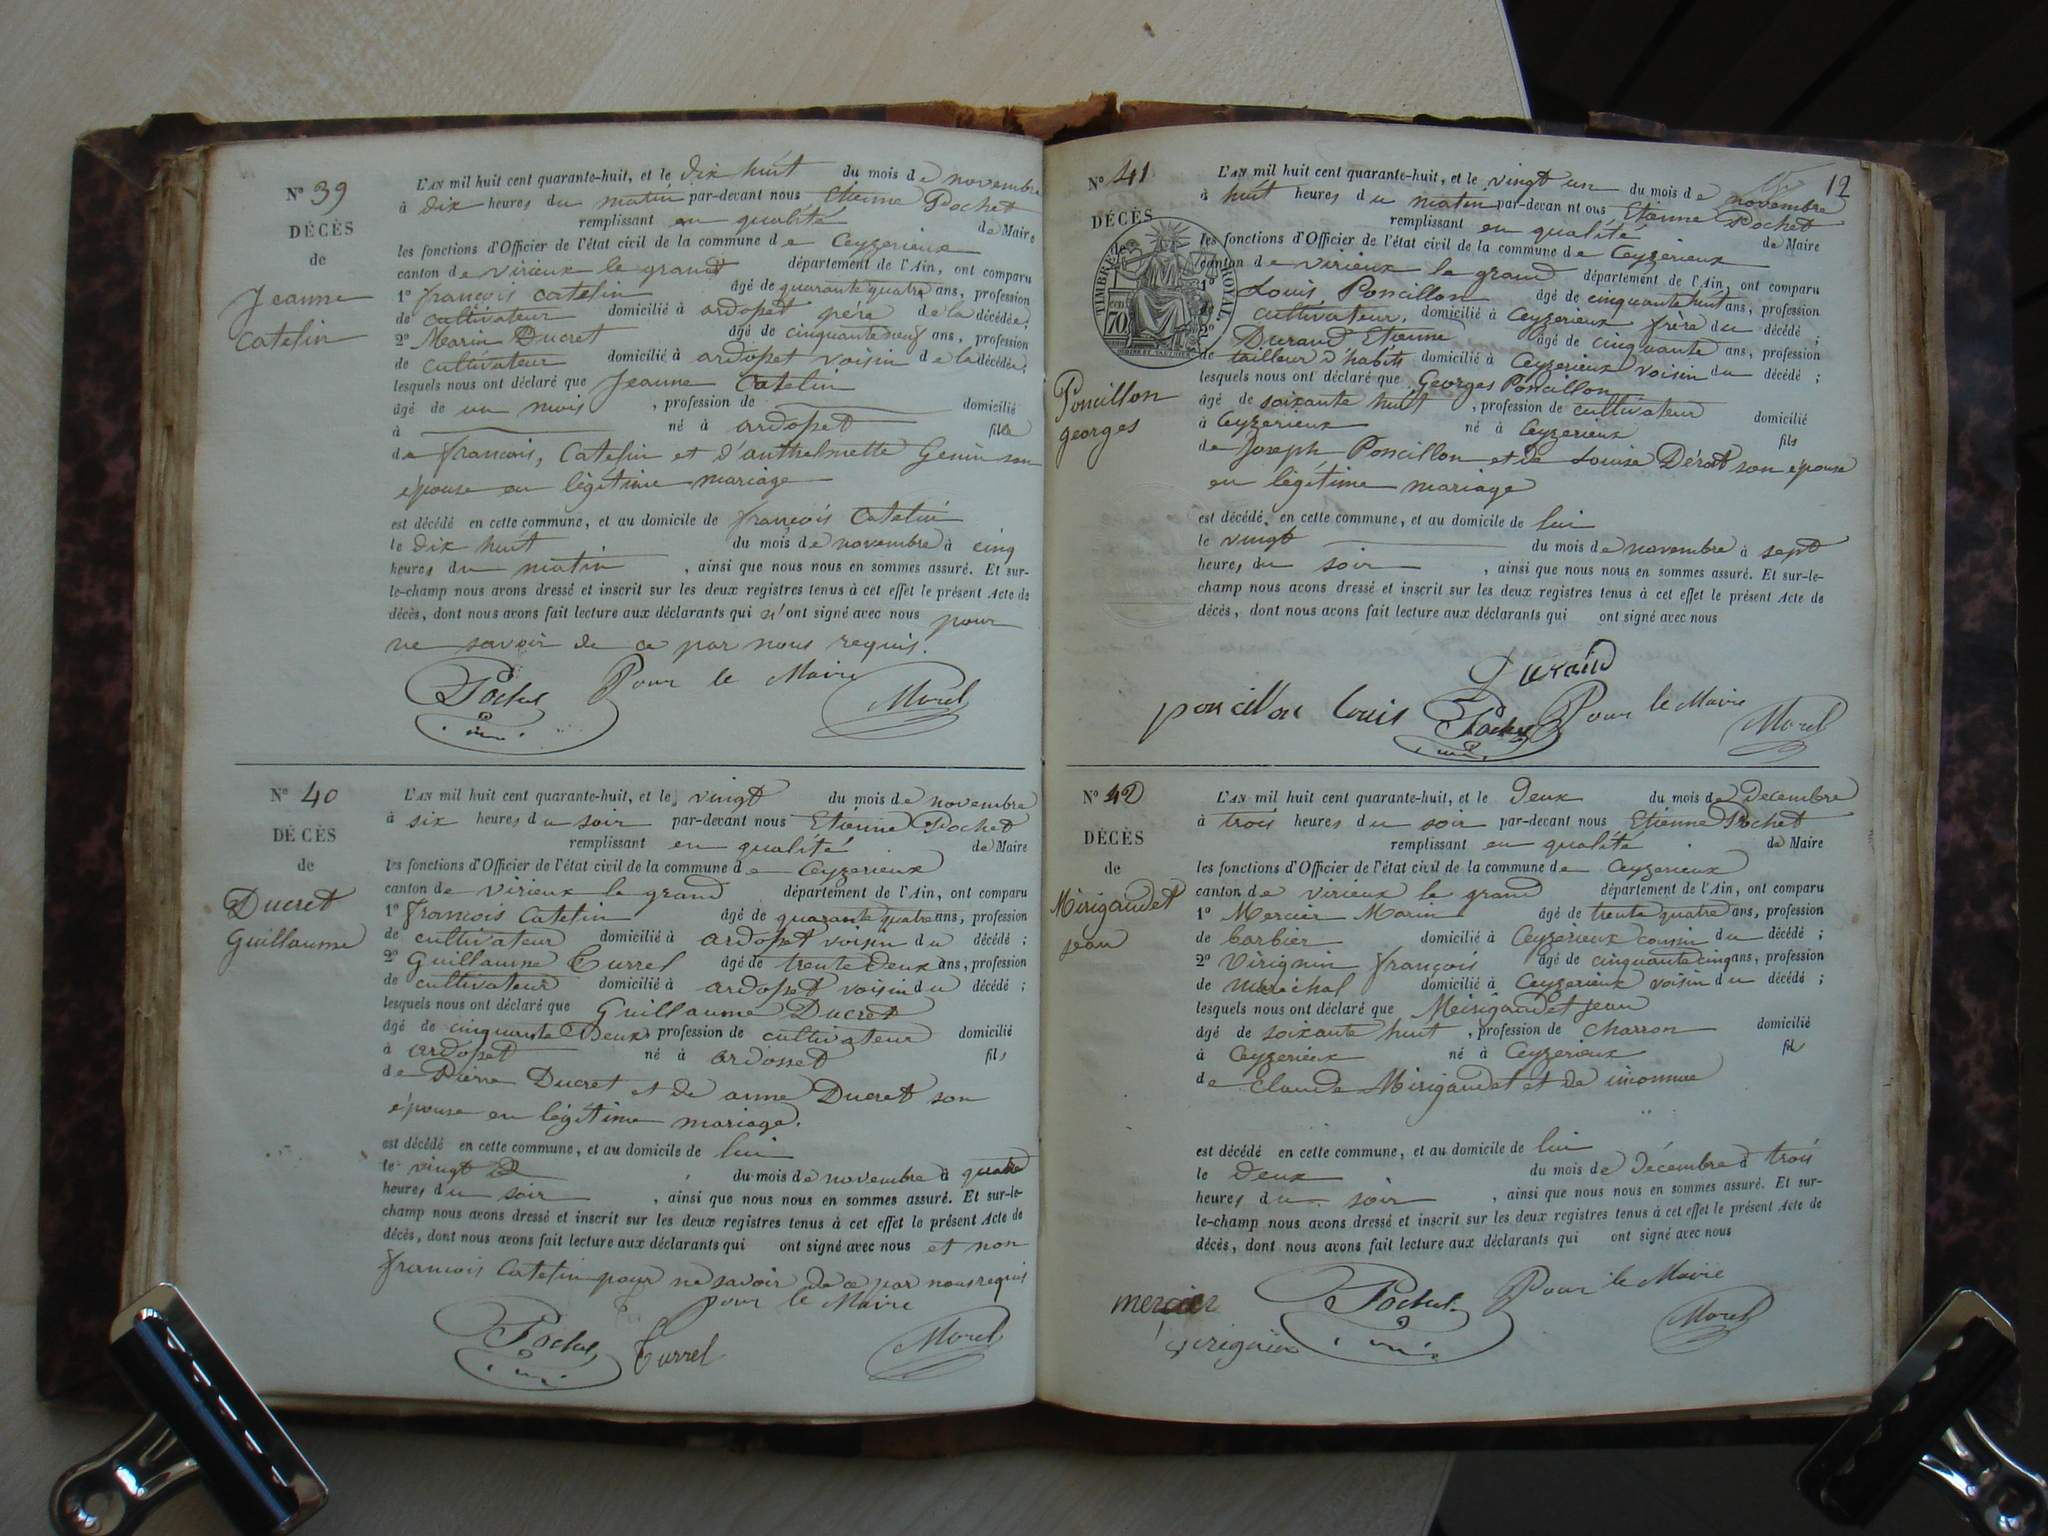 N° 39
DÉCÈS
de
Jeanne
Catelin
L'AN mil huit cent quarante-huit, et le dix huit du mois de novembre
à dix heures du matin par-devant nous Etienne Pochet
remplissant en qualité de Maire
les fonctions d'Officier de l'état civil de la commune de Ceyzerieux
canton de virieux le grand département de l'Ain, ont comparu
1° françois Catelin âgé de quarante quatre ans, profession
de cultivateur domicilié à ardosset père de la décédée;
2° Marin Ducret âgé de cinquante neuf ans, profession
de cultivateur domicilié à ardosset voisin de la décédée;
lesquels nous ont déclaré que Jeanne Catelin
âgé de un mois, profession de domicilié
à né à ardosset fille
de françois, Catelin et d'anthelmette Genin son
épouse en légitime mariage
est décédé en cette commune, et au domicile de françois Catelin
le dix huit du mois de novembre à cinq
heures du matin, ainsi que nous nous en sommes assuré. Et sur-
le-champ nous avons dressé et inscrit sur les deux registres tenus à cet effet le présent Acte de
décès, dont nous avons fait lecture aux déclarants qui n'ont signé avec nous pour
ne savoir de ce par nous requis.
Pochet Pour le Maire Morel
N° 40
DÉCÈS
de
Ducret
Guillaume
L'AN mil huit cent quarante-huit, et le vingt du mois de novembre
à six heures du soir par-devant nous Etienne Pochet
remplissant en qualité de Maire
les fonctions d'Officier de l'état civil de la commune de Ceyzerieux
canton de virieux le grand département de l'Ain, ont comparu
1° françois Catelin âgé de quarante quatre ans, profession
de cultivateur domicilié à ardosset voisin du décédé;
2° Guillaume Turrel âgé de trente deux ans, profession
de cultivateur domicilié à ardosset voisin du décédé;
lesquels nous ont déclaré que Guillaume Ducret
âgé de cinquante Deux, profession de cultivateur domicilié
à ardosset né à ardosset fils
de Pierre Ducret et de anne Ducret son
épouse en légitime mariage.
est décédé en cette commune, et au domicile de lui
le vingt du mois de novembre à quatre
heures du soir, ainsi que nous nous en sommes assuré. Et sur-le-
champ nous avons dressé et inscrit sur les deux registres tenus à cet effet le présent Acte de
décès, dont nous avons fait lecture aux déclarants qui ont signé avec nous et non
françois Catelin pour ne savoir de ce par nous requis
pour le Maire
Pochet Turrel Morel
12
N° 41
DÉCÈS
de
TIMBRE ROYAL
70
Poncillon
georges
L'AN mil huit cent quarante-huit, et le vingt un du mois de novembre
à huit heures du matin par-devan nt ous Etienne Pochet
remplissant en qualité de Maire
les fonctions d'Officier de l'état civil de la commune de Ceyzerieux
canton de virieux le grand département de l'Ain, ont comparu
1° Louis Poncillon âgé de cinquante huit ans, profession
de cultivateur, domicilié à Ceyzerieux frère du décédé;
2° Durand Etienne âgé de cinquante ans, profession
de tailleur d'habits domicilié à Ceyzerieux voisin du décédé;
lesquels nous ont déclaré que Georges Poncillon
âgé de soixante huit, profession de cultivateur domicilié
à Ceyzerieux né à Ceyzerieux fils
de Joseph Poncillon et de Louise Dérot son épouse
en légitime mariage
est décédé en cette commune, et au domicile de lui
le vingt du mois de novembre à sept
heures du soir, ainsi que nous nous en sommes assuré. Et sur-le-
champ nous avons dressé et inscrit sur les deux registres tenus à cet effet le présent Acte de
décès, dont nous avons fait lecture aux déclarants qui ont signé avec nous
Durand
poncillon louis Pochet Pour le Maire Morel
N° 42
DÉCÈS
de
Mirigaudet
jean
L'AN mil huit cent quarante-huit, et le Deux du mois de Decembre
à trois heures du soir par-devant nous Etienne Pochet
remplissant en qualité de Maire
les fonctions d'Officier de l'état civil de la commune de Ceyzerieux
canton de virieux le grand département de l'Ain, ont comparu
1° Mercier Marin âgé de trente quatre ans, profession
de barbier domicilié à Ceyzerieux cousin du décédé;
2° Virignin françois âgé de cinquante cinq ans, profession
de maréchal domicilié à Ceyzerieux voisin du décédé;
lesquels nous ont déclaré que Meirigaudet Jean
âgé de soixante huit, profession de charron domicilié
à Ceyzerieux né à Ceyzerieux fils
de Claude Mirigaudet et de inconnue
est décédé en cette commune, et au domicile de lui
le Deux du mois de Décembre à trois
heures du soir, ainsi que nous nous en sommes assuré. Et sur-
le-champ nous avons dressé et inscrit sur les deux registres tenus à cet effet le présent Acte de
décès, dont nous avons fait lecture aux déclarants qui ont signé avec nous
mercier Pochet Pour le Maire
Morel